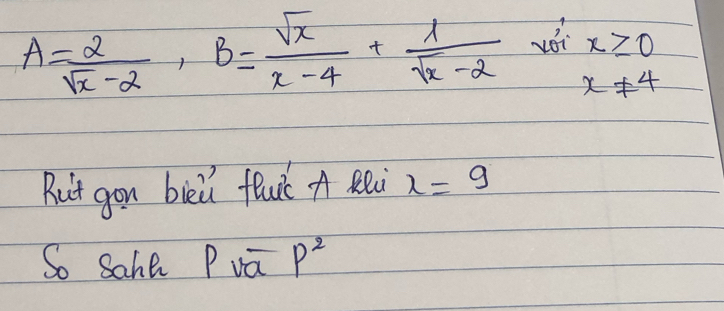 A = 2/(√x - 2), B = √x/(x - 4) + 1/(√x - 2) với x ≥ 0
x ≠ 4
Rút gọn biểu thức A khi x = 9
So sánh P và P²